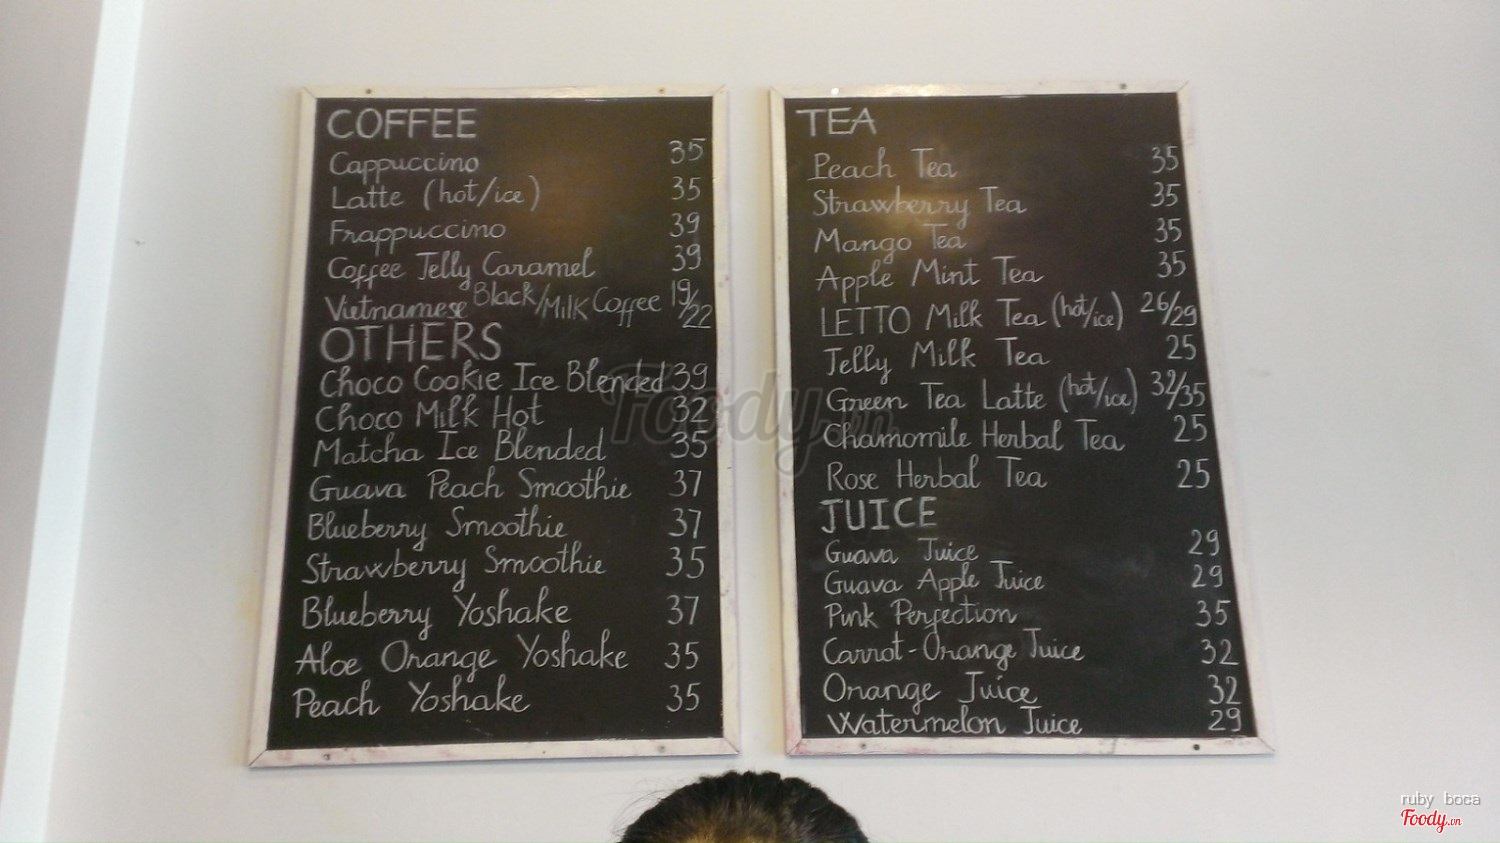 COFFEE
Cappuccino 35
Latte (hot/ice) 35
Frappuccino 39
Coffee Jelly Caramel 39
Vietnamese Black/Milk Coffee 19/22
OTHERS
Choco Cookie Ice Blended 39
Choco Milk Hot 32
Matcha Ice Blended 35
Guava Peach Smoothie 37
Blueberry Smoothie 37
Strawberry Smoothie 35
Blueberry Yoshake 37
Aloe Orange Yoshake 35
Peach Yoshake 35
TEA
Peach Tea 35
Strawberry Tea 35
Mango Tea 35
Apple Mint Tea 35
LETTO Milk Tea (hot/ice) 26/29
Jelly Milk Tea 25
Green Tea Latte (hot/ice) 32/35
Chamomile Herbal Tea 25
Rose Herbal Tea 25
JUICE
Guava Juice 29
Guava Apple Juice 29
Pink Perfection 35
Carrot-Orange Juice 32
Orange Juice 32
Watermelon Juice 29
Foody.vn
ruby boca
Foody.vn